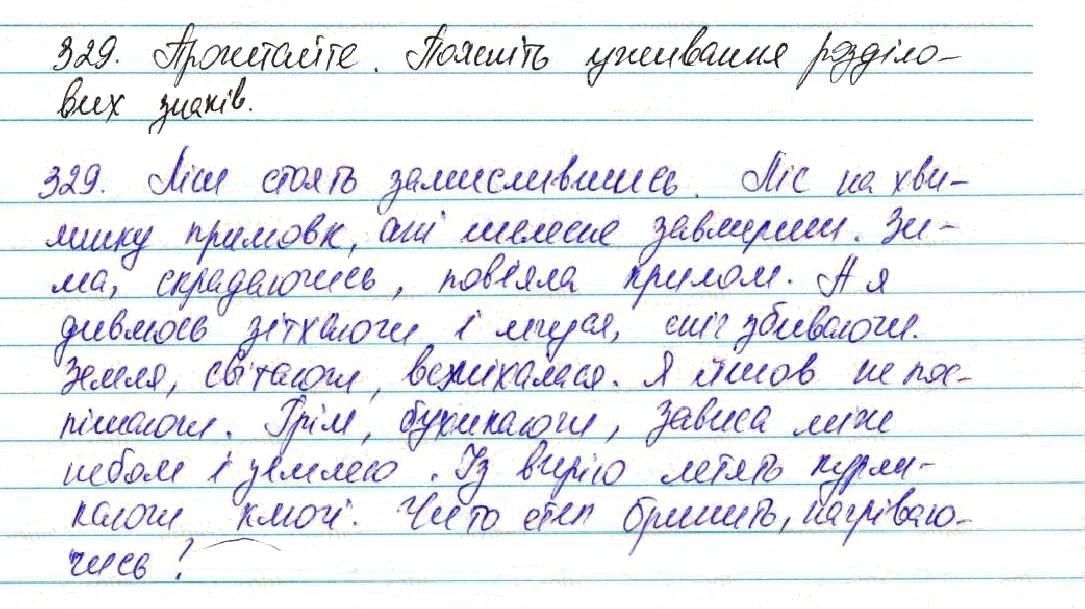 329. Прочитайте. Поясніть уживання розділо-
вих знаків.
329. Ліси стоять замислившись. Ліс на хви-
линку примовк, ані шелесне завмерши. Зи-
ма, скрадаючись, повіяла крилом. А я
дивлюсь зітхаючи і мчуся, сніг збиваючи.
Земля, світаючи, всміхалася. Я йшов не пос-
пішаючи. Грім, бухикаючи, зависа між
небом і землею. Із вирію летять курли-
каючи ключі. Чи то степ бринить, нагріваю-
чись?